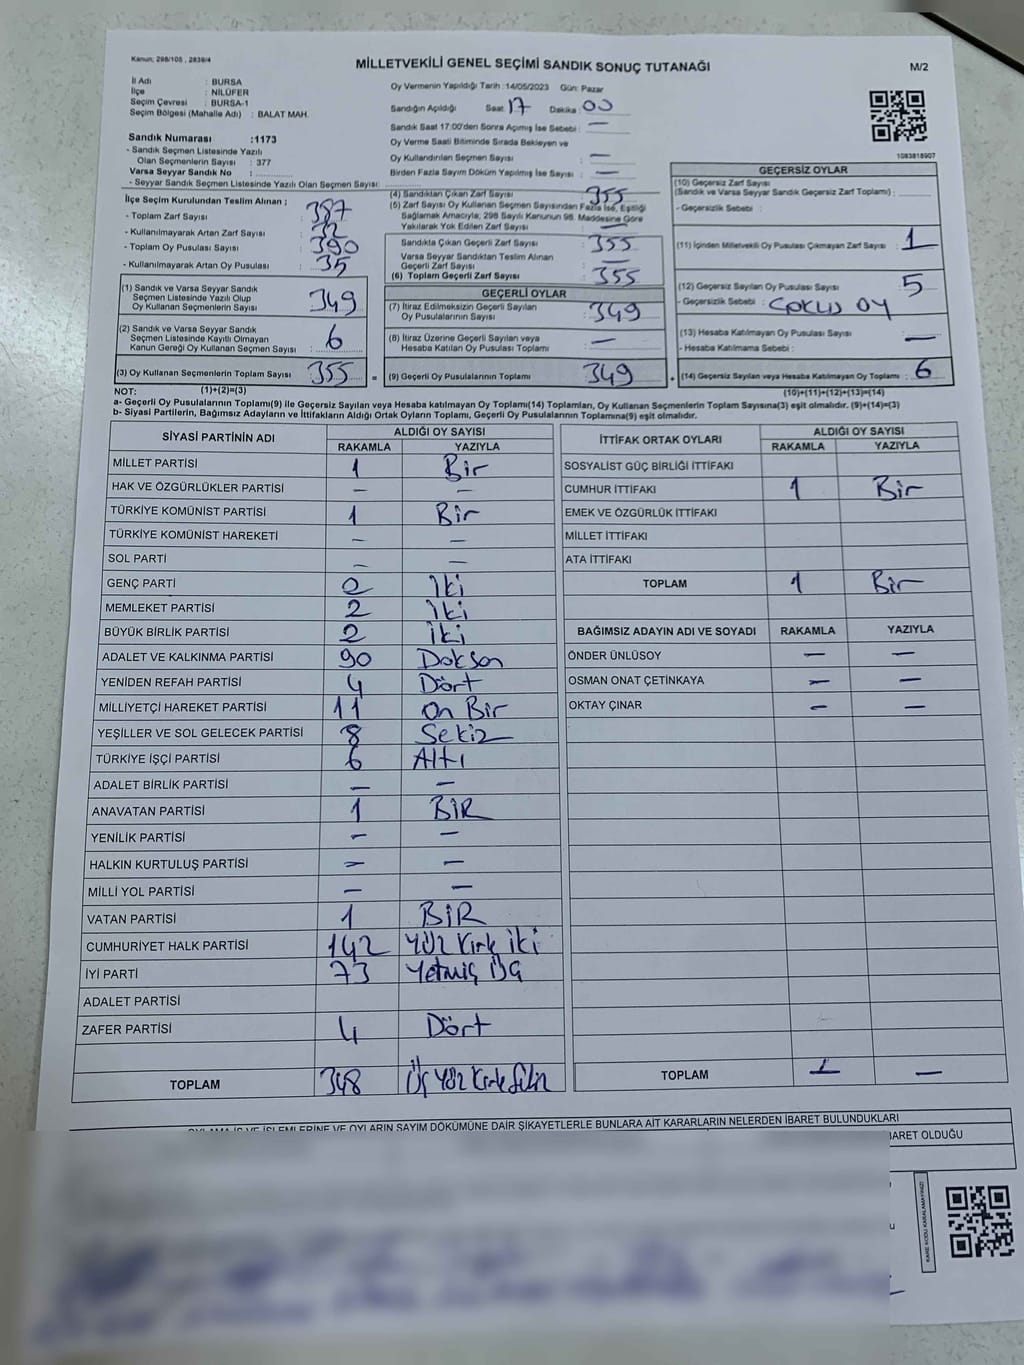 Kanun; 298/105 , 2839/4
MİLLETVEKİLİ GENEL SEÇİMİ SANDIK SONUÇ TUTANAĞI
M/2
İl Adı : BURSA
İlçe : NİLÜFER
Seçim Çevresi : BURSA-1
Seçim Bölgesi (Mahalle Adı) : BALAT MAH.
Sandık Numarası :1173
- Sandık Seçmen Listesinde Yazılı
Olan Seçmenlerin Sayısı : 377
Varsa Seyyar Sandık No :
- Seyyar Sandık Seçmen Listesinde Yazılı Olan Seçmen Sayısı:
Oy Vermenin Yapıldığı Tarih :14/05/2023 Gün: Pazar
Sandığın Açıldığı Saat 17 Dakika : 00
Sandık Saat 17:00'den Sonra Açımış İse Sebebi : —
Oy Verme Saati Bitiminde Sırada Bekleyen ve
Oy Kullandırılan Seçmen Sayısı —
Birden Fazla Sayım Döküm Yapılmış İse Sayısı : —
1083818907
İlçe Seçim Kurulundan Teslim Alınan ;
- Toplam Zarf Sayısı : 387
- Kullanılmayarak Artan Zarf Sayısı : 32
- Toplam Oy Pusulası Sayısı : 390
- Kullanılmayarak Artan Oy Pusulası : 35
(1) Sandık ve Varsa Seyyar Sandık
Seçmen Listesinde Yazılı Olup
Oy Kullanan Seçmenlerin Sayısı : 349
(2) Sandık ve Varsa Seyyar Sandık
Seçmen Listesinde Kayıtlı Olmayan
Kanun Gereği Oy Kullanan Seçmen Sayısı : 6
(3) Oy Kullanan Seçmenlerin Toplam Sayısı : 355 =
(4) Sandıktan Çıkan Zarf Sayısı : 355
(5) Zarf Sayısı Oy Kullanan Seçmen Sayısından Fazla İse, Eşitliği
Sağlamak Amacıyla, 298 Sayılı Kanunun 98. Maddesine Göre
Yakılarak Yok Edilen Zarf Sayısı : —
Sandıkta Çıkan Geçerli Zarf Sayısı : 355
Varsa Seyyar Sandıktan Teslim Alınan
Geçerli Zarf Sayısı : —
(6) Toplam Geçerli Zarf Sayısı : 355
GEÇERLİ OYLAR
(7) İtiraz Edilmeksizin Geçerli Sayılan
Oy Pusulalarının Sayısı : 349
(8) İtiraz Üzerine Geçerli Sayılan veya
Hesaba Katılan Oy Pusulası Toplamı : —
(9) Geçerli Oy Pusulalarının Toplamı : 349 +
GEÇERSİZ OYLAR
(10) Geçersiz Zarf Sayısı
(Sandık ve Varsa Seyyar Sandık Geçersiz Zarf Toplamı) :
- Geçersizlik Sebebi :
(11) İçinden Milletvekili Oy Pusulası Çıkmayan Zarf Sayısı : 1
(12) Geçersiz Sayılan Oy Pusulası Sayısı : 5
- Geçersizlik Sebebi :
(13) Hesaba Katılmayan Oy Pusulası Sayısı : —
- Hesaba Katılmama Sebebi :
(14) Geçersiz Sayılan veya Hesaba Katılmayan Oy Toplamı : 6
NOT: (1)+(2)=(3) (10)+(11)+(12)+(13)=(14)
a- Geçerli Oy Pusulalarının Toplamı(9) ile Geçersiz Sayılan veya Hesaba katılmayan Oy Toplamı(14) Toplamları, Oy Kullanan Seçmenlerin Toplam Sayısına(3) eşit olmalıdır. (9)+(14)=(3)
b- Siyasi Partilerin, Bağımsız Adayların ve İttifakların Aldığı Ortak Oyların Toplamı, Geçerli Oy Pusulalarının Toplamına(9) eşit olmalıdır.
SİYASİ PARTİNİN ADI ALDIĞI OY SAYISI
RAKAMLA YAZIYLA
MİLLET PARTİSİ 1 Bir
HAK VE ÖZGÜRLÜKLER PARTİSİ — —
TÜRKİYE KOMÜNİST PARTİSİ 1 Bir
TÜRKİYE KOMÜNİST HAREKETİ — —
SOL PARTİ — —
GENÇ PARTİ 2 İki
MEMLEKET PARTİSİ 2 İki
BÜYÜK BİRLİK PARTİSİ 2 İki
ADALET VE KALKINMA PARTİSİ 90 Doksan
YENİDEN REFAH PARTİSİ 4 Dört
MİLLİYETÇİ HAREKET PARTİSİ 11 On Bir
YEŞİLLER VE SOL GELECEK PARTİSİ 8 Sekiz
TÜRKİYE İŞÇİ PARTİSİ 6 Altı
ADALET BİRLİK PARTİSİ — —
ANAVATAN PARTİSİ 1 BİR
YENİLİK PARTİSİ — —
HALKIN KURTULUŞ PARTİSİ — —
MİLLİ YOL PARTİSİ — —
VATAN PARTİSİ 1 BİR
CUMHURİYET HALK PARTİSİ 142 Yüz Kırk iki
İYİ PARTİ 73 Yetmiş Üç
ADALET PARTİSİ
ZAFER PARTİSİ 4 Dört
TOPLAM 348 Üç Yüz Kırk
İTTİFAK ORTAK OYLARI ALDIĞI OY SAYISI
RAKAMLA YAZIYLA
SOSYALİST GÜÇ BİRLİĞİ İTTİFAKI
CUMHUR İTTİFAKI 1 Bir
EMEK VE ÖZGÜRLÜK İTTİFAKI
MİLLET İTTİFAKI
ATA İTTİFAKI
TOPLAM 1 Bir
BAĞIMSIZ ADAYIN ADI VE SOYADI RAKAMLA YAZIYLA
ÖNDER ÜNLÜSOY — —
OSMAN ONAT ÇETİNKAYA — —
OKTAY ÇINAR — —
TOPLAM — —
OYLAMA İŞ VE İŞLEMLERİNE VE OYLARIN SAYIM DÖKÜMÜNE DAİR ŞİKAYETLERLE BUNLARA AİT KARARLARIN NELERDEN İBARET BULUNDUKLARI
BARET OLDUĞU
KARE KODU KARALAMAYINIZ!